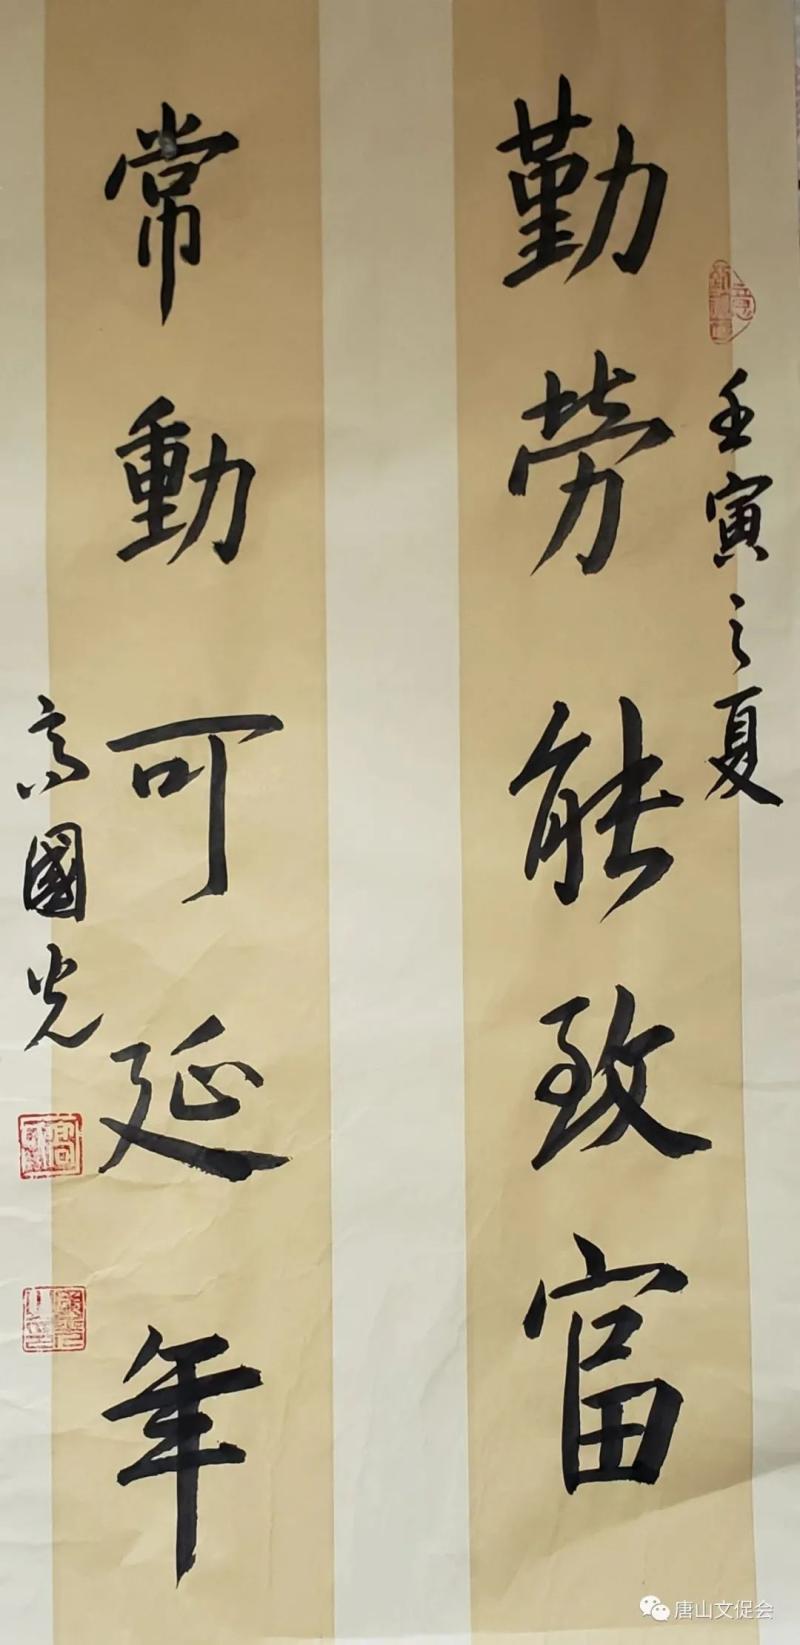 勤劳能致富
壬寅之夏
常動可延年
高國光
唐山文促会